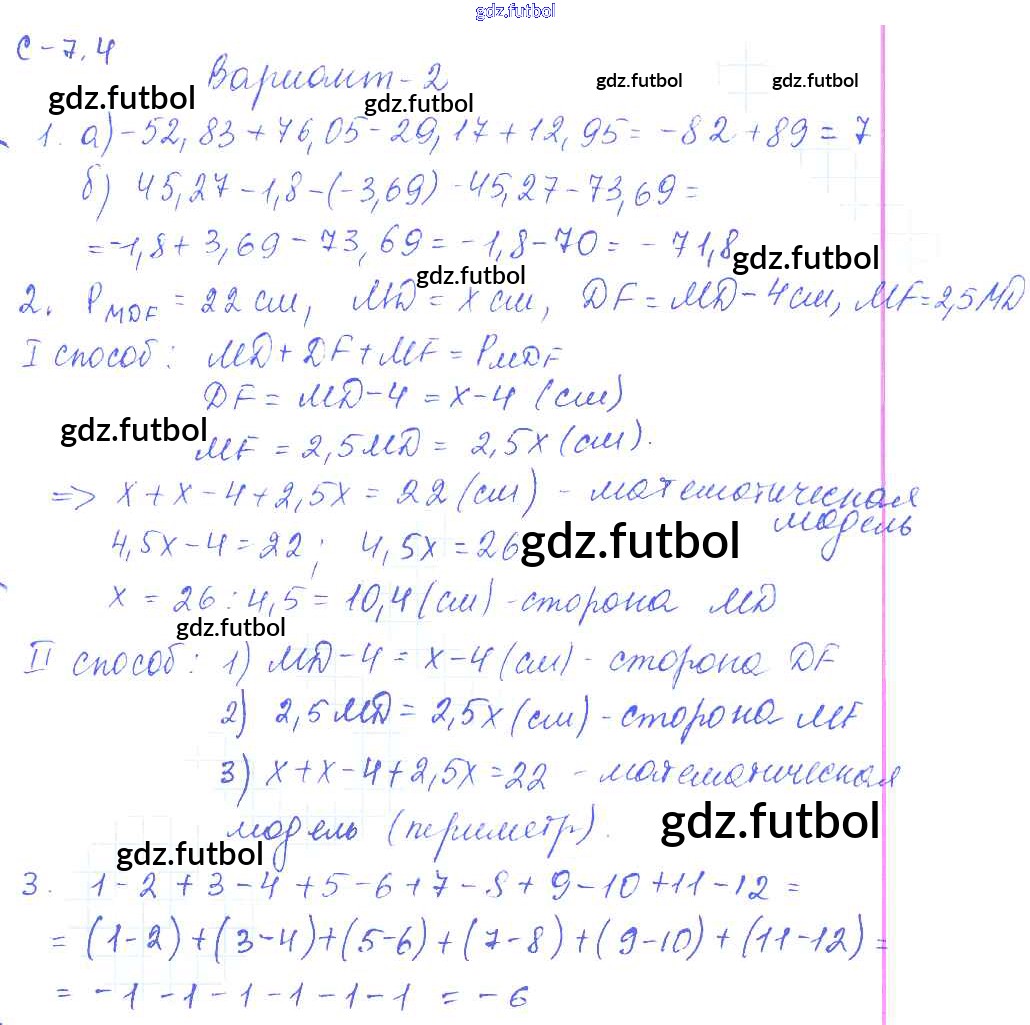 gdz.futbol
С-7.4
Вариант-2
gdz.futbol gdz.futbol gdz.futbol gdz.futbol
1. а) -52,83 + 76,05 - 29,17 + 12,95 = -82 + 89 = 7
б) 45,27 - 1,8 - (-3,69) - 45,27 - 73,69 =
= -1,8 + 3,69 - 73,69 = -1,8 - 70 = - 71,8
gdz.futbol
gdz.futbol
2. P MDF = 22 см, MD = x см, DF = MD - 4 см, MF = 2,5 MD
I способ: MD + DF + MF = P MDF
DF = MD - 4 = x - 4 (см)
gdz.futbol
MF = 2,5MD = 2,5x (см).
=> x + x - 4 + 2,5x = 22 (см) - математическая
модель
4,5x - 4 = 22; 4,5x = 26
gdz.futbol
x = 26 : 4,5 = 10,4 (см) - сторона MD
gdz.futbol
II способ: 1) MD - 4 = x - 4 (см) - сторона DF
2) 2,5MD = 2,5x (см) - сторона MF
3) x + x - 4 + 2,5x = 22 - математическая
модель (периметр).
gdz.futbol
gdz.futbol
3. 1 - 2 + 3 - 4 + 5 - 6 + 7 - 8 + 9 - 10 + 11 - 12 =
= (1-2) + (3-4) + (5-6) + (7-8) + (9-10) + (11-12) =
= -1 - 1 - 1 - 1 - 1 - 1 = - 6